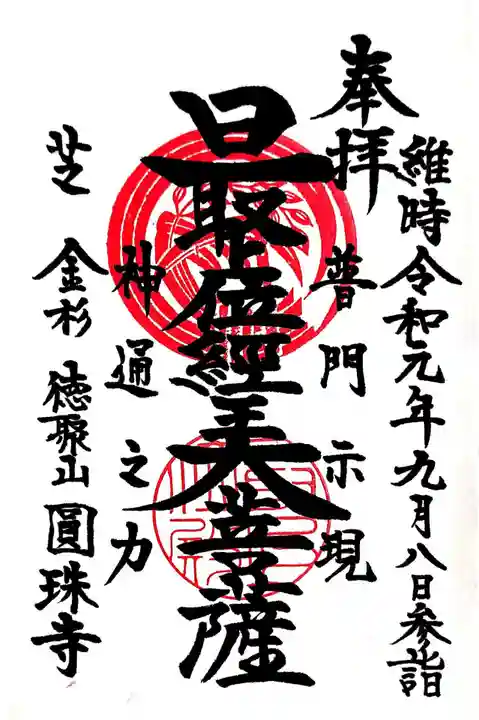 維時令和元年九月八日参詣
奉拝
普門示現
最上位經王大菩薩
神通之力
芝 金杉 徳聚山 圓珠寺